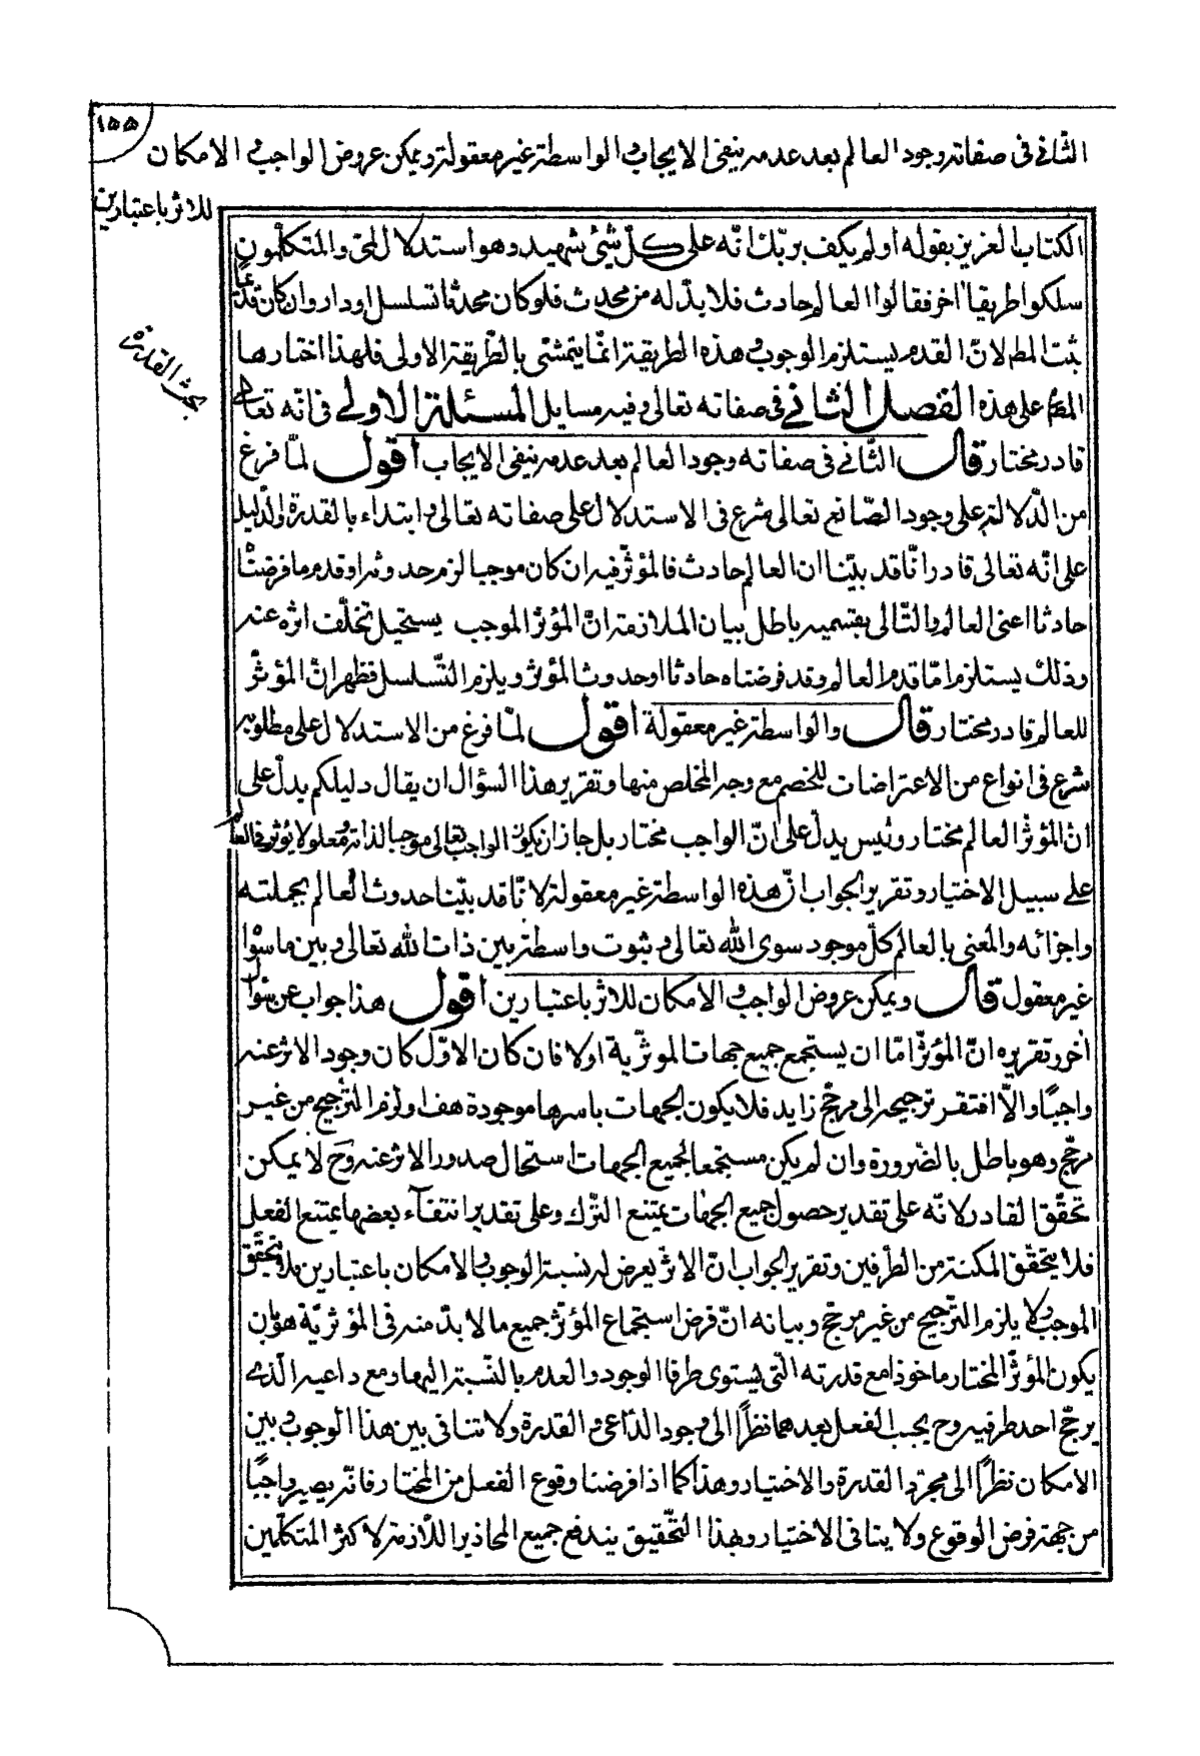 ١٥٥
الثاني في صفاته وجود العالم بعد عدمه ينفي الايجاب والواسطة غير معقولة ويمكن عروض الواجب و الامكان
للاثر باعتبارين
الكتاب العزيز بقوله او لم يكف بربك انّه على كلّ شئ شهيد وهو استدلال لمّي والمتكلّمون
سلكوا طريقا اخر فقالوا العالم حادث فلا بدّ له من محدث فلو كان محدثا تسلسل او دار وان كان قديمًا
ثبت المطـ لانّ القدم يستلزم الوجوب وهذه الطريقة انّما يتمشّى بالطّريقة الاولى فلهذا اختارها
بحث القدرة
المصـ على هذه الفصل الثاني في صفاته تعالى وفيه مسايل المسئلة الاولى في انّه تعالى
قادر مختار قال الثّاني في صفاته وجود العالم بعد عدمه ينفي الايجاب اقول لمّا فرغ
من الدّلالة على وجود الصّانع تعالى شرع في الاستدلال على صفاته تعالى وابتداء بالقدرة والدّليل
على انّه تعالى قادر انّا قد بيّنا ان العالم حادث فالمؤثّر فيه ان كان موجبا لزم حدوثه او قدم ما فرضنا
حادثا اعني العالم والتّالي بقسميه باطل بيان الملازمة انّ المؤثر الموجب يستحيل تخلّف اثره عنه
وذلك يستلزم امّا قدم العالم وقد فرضناه حادثا او حدوث المؤثر ويلزم التّسلسل فظهر انّ المؤثّر
للعالم قادر مختار قال والواسطة غير معقولة اقول لمّا فرغ من الاستدلال على مطلوبه
شرع في انواع من الاعتراضات للخصم مع وجه المخلص منها وتقرير هذا السؤال ان يقال دليلكم يدلّ على
انّ المؤثر العالم مختار وليس يدلّ على انّ الواجب مختار بل جاز ان يكون الواجب تعالى موجبا لذاته ومعلوله يؤثر في العالم
على سبيل الاختيار وتقرير الجواب انّ هذه الواسطة غير معقولة لانّا قد بيّنا حدوث العالم بجملته
واجزائه والمعني بالعالم كلّ موجود سوى الله تعالى وثبوت واسطة بين ذات الله تعالى وبين ما سواه
غير معقول قال ويمكن عروض الواجب و الامكان للاثر باعتبارين اقول هذا جواب عن سؤال
اخر وتقريره انّ المؤثّر امّا ان يستجمع جميع جهات الموثّرية اولا فان كان الاوّل كان وجود الاثر عنه
واجبًا والّا افتقر ترجيحه الى مرجّح زايد فلا يكون الجهات باسرها موجودة هف او لزم التّرجيح من غير
مرجّح وهو باطل بالضّرورة وان لم يكن مستجمعا لجميع الجهات استحال صدور الاثر عنه وح لا يمكن
تحقّق القادر لانّه على تقدير حصول جميع الجهات يمتنع التّرك وعلى تقدير انتفاء بعضها يمتنع الفعل
فلا يتحقّق المكنة من الطّرفين وتقرير الجواب انّ الاثر يعرض له نسبة الوجوب والامكان باعتبارين فلا يتحقّق
الموجب ولا يلزم التّرجيح من غير مرجّح وبيانه انّ فرض استجماع المؤثّر جميع ما لا بدّ منه في المؤثريّة هو بان
يكون المؤثّر المختار ماخوذا مع قدرته الّتي يستوي طرفا الوجود والعدم بالنّسبة اليها ومع داعيه الّذي
يرجّح احد طرفيه وح يجب الفعل بعدهما نظرًا الى وجود الدّاعي والقدرة ولا تنافي بين هذا الوجوب وبين
الامكان نظرًا الى مجرّد القدرة والاختيار وهذا كما اذا فرضنا وقوع الفعل من المختار فانّه يصير واجبًا
من جهة فرض الوقوع ولا ينافي الاختيار وبهذا التّحقيق يندفع جميع المحاذير اللّازمة لاكثر المتكلّمين